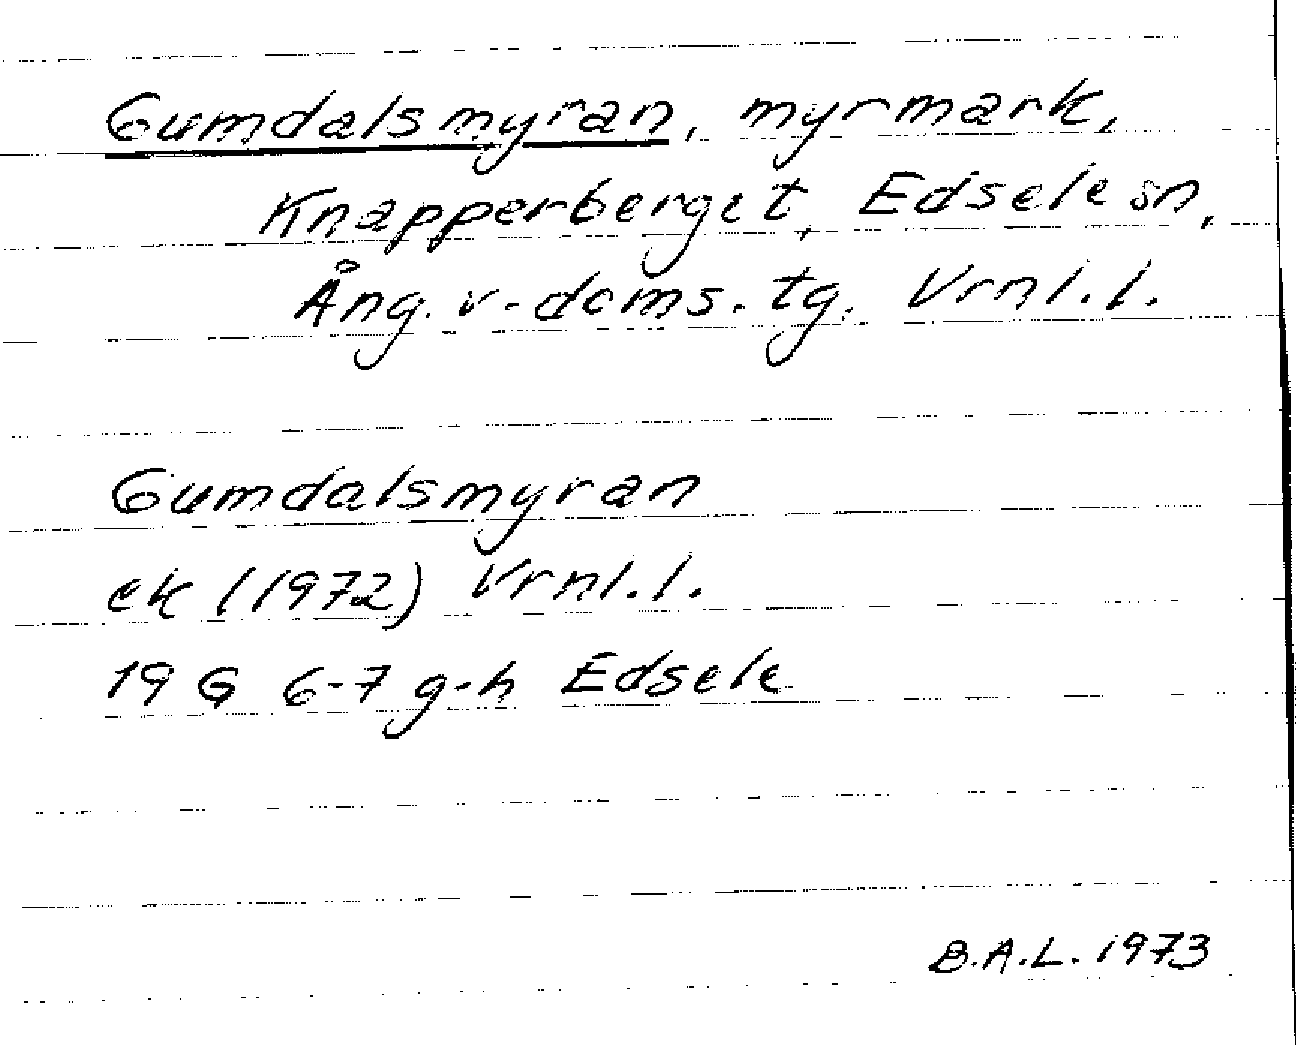 Gumdalsmyran, myrmark,
Knapperberget, Edsele sn,
Ång. v. doms. tg, Vrnl. l.
Gumdalsmyran
ek (1972) Vrnl. l.
19 G 6-7 g-h Edsele
B.A.L. 1973